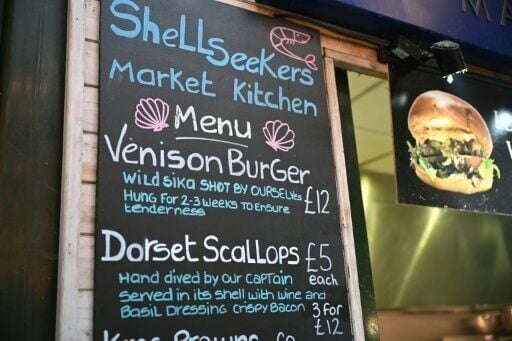 Shell Seekers
Market Kitchen
Menu
Venison Burger
Wild Sika shot by ourselves
Hung for 2-3 weeks to ensure
tenderness
£12
Dorset Scallops £5
each
Hand dived by our captain
served in its shell with wine and
Basil Dressing crispy Bacon
3 for
£12
King Prawns
MA